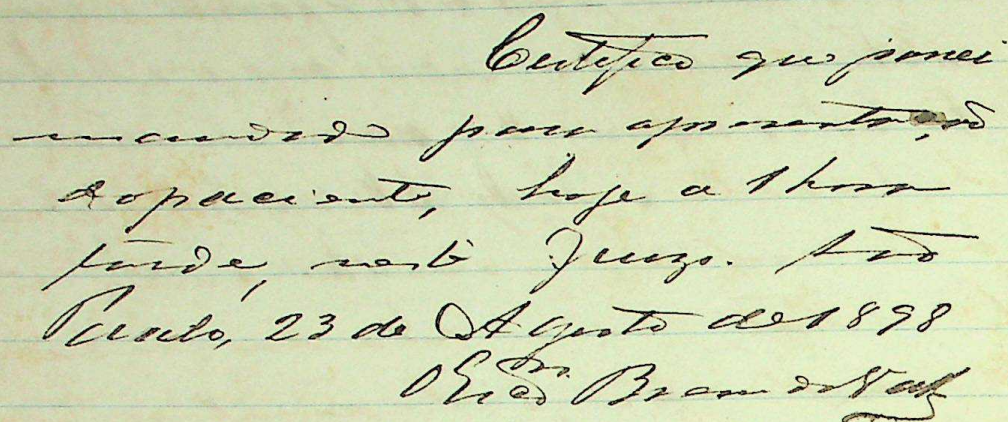 Certifico que passei
mandado para apresentação
do paciente, hoje a 1 hora
tarde, neste Juizo. São
Paulo, 23 de Agosto de 1898
O Escrão